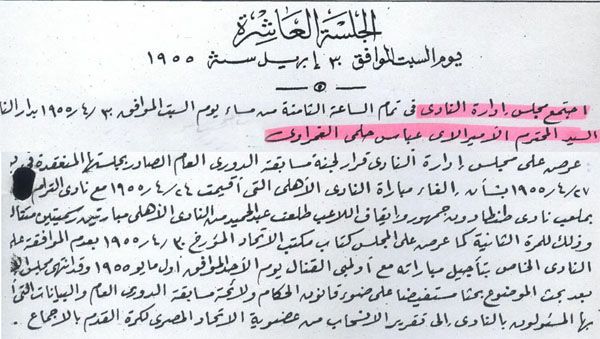 الجلسة العاشرة
يوم السبت الموافق ٣٠ إبريل سنة ١٩٥٥
اجتمع مجلس إدارة النادى فى تمام الساعة الثامنة من مساء يوم السبت الموافق ٣٠/٤/١٩٥٥ بدار النا
السيد المحترم الأميرالاى عباس حلمى الغمراوى
عرض على مجلس إدارة النادى قرار لجنة مسابقة الدورى العام الصادر بجلستها المنعقدة فى
٢٧/٤/١٩٥٥ بشأن إلغاء مباراة النادى الأهلى التى أقيمت ٢٤/٤/١٩٥٥ مع نادى الترام
بملعب نادى طنطا دون جمهور وإيقاف اللاعب طلعت عبد الحميد من النادى الأهلى مبارتين رسميتين
وذلك للمرة الثانية كما عرض على المجلس كتاب مكتب الاتحاد المؤرخ ٣٠/٤/١٩٥٥ بعدم الموافقة على
النادى الخاص بتأجيل مباراته مع أولمبى القنال يوم الأحد الموافق أول مايو ١٩٥٥ وقد انتهى مجلس
بعد بحث الموضوع بحثا مستفيضا على ضوء قانون الحكام ولائحة مسابقة الدورى العام والبيانات التى
بها المسئولون بالنادى إلى تقرير الانسحاب من عضوية الاتحاد المصرى لكرة القدم بالإجماع .